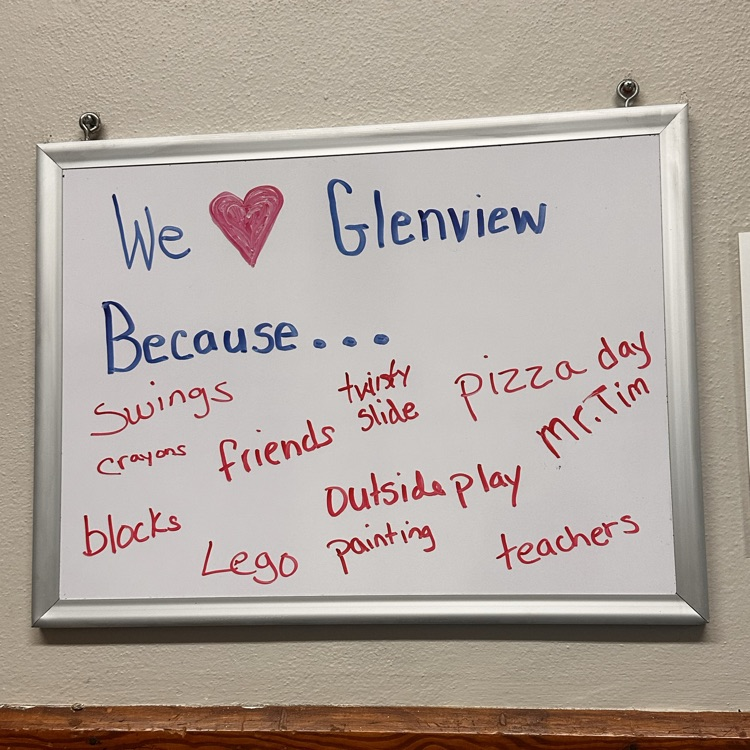 We ♥ Glenview
Because...
Swings
twisty
slide
pizza day
crayons
friends
Mr. Tim
outside play
blocks
Lego
painting
teachers